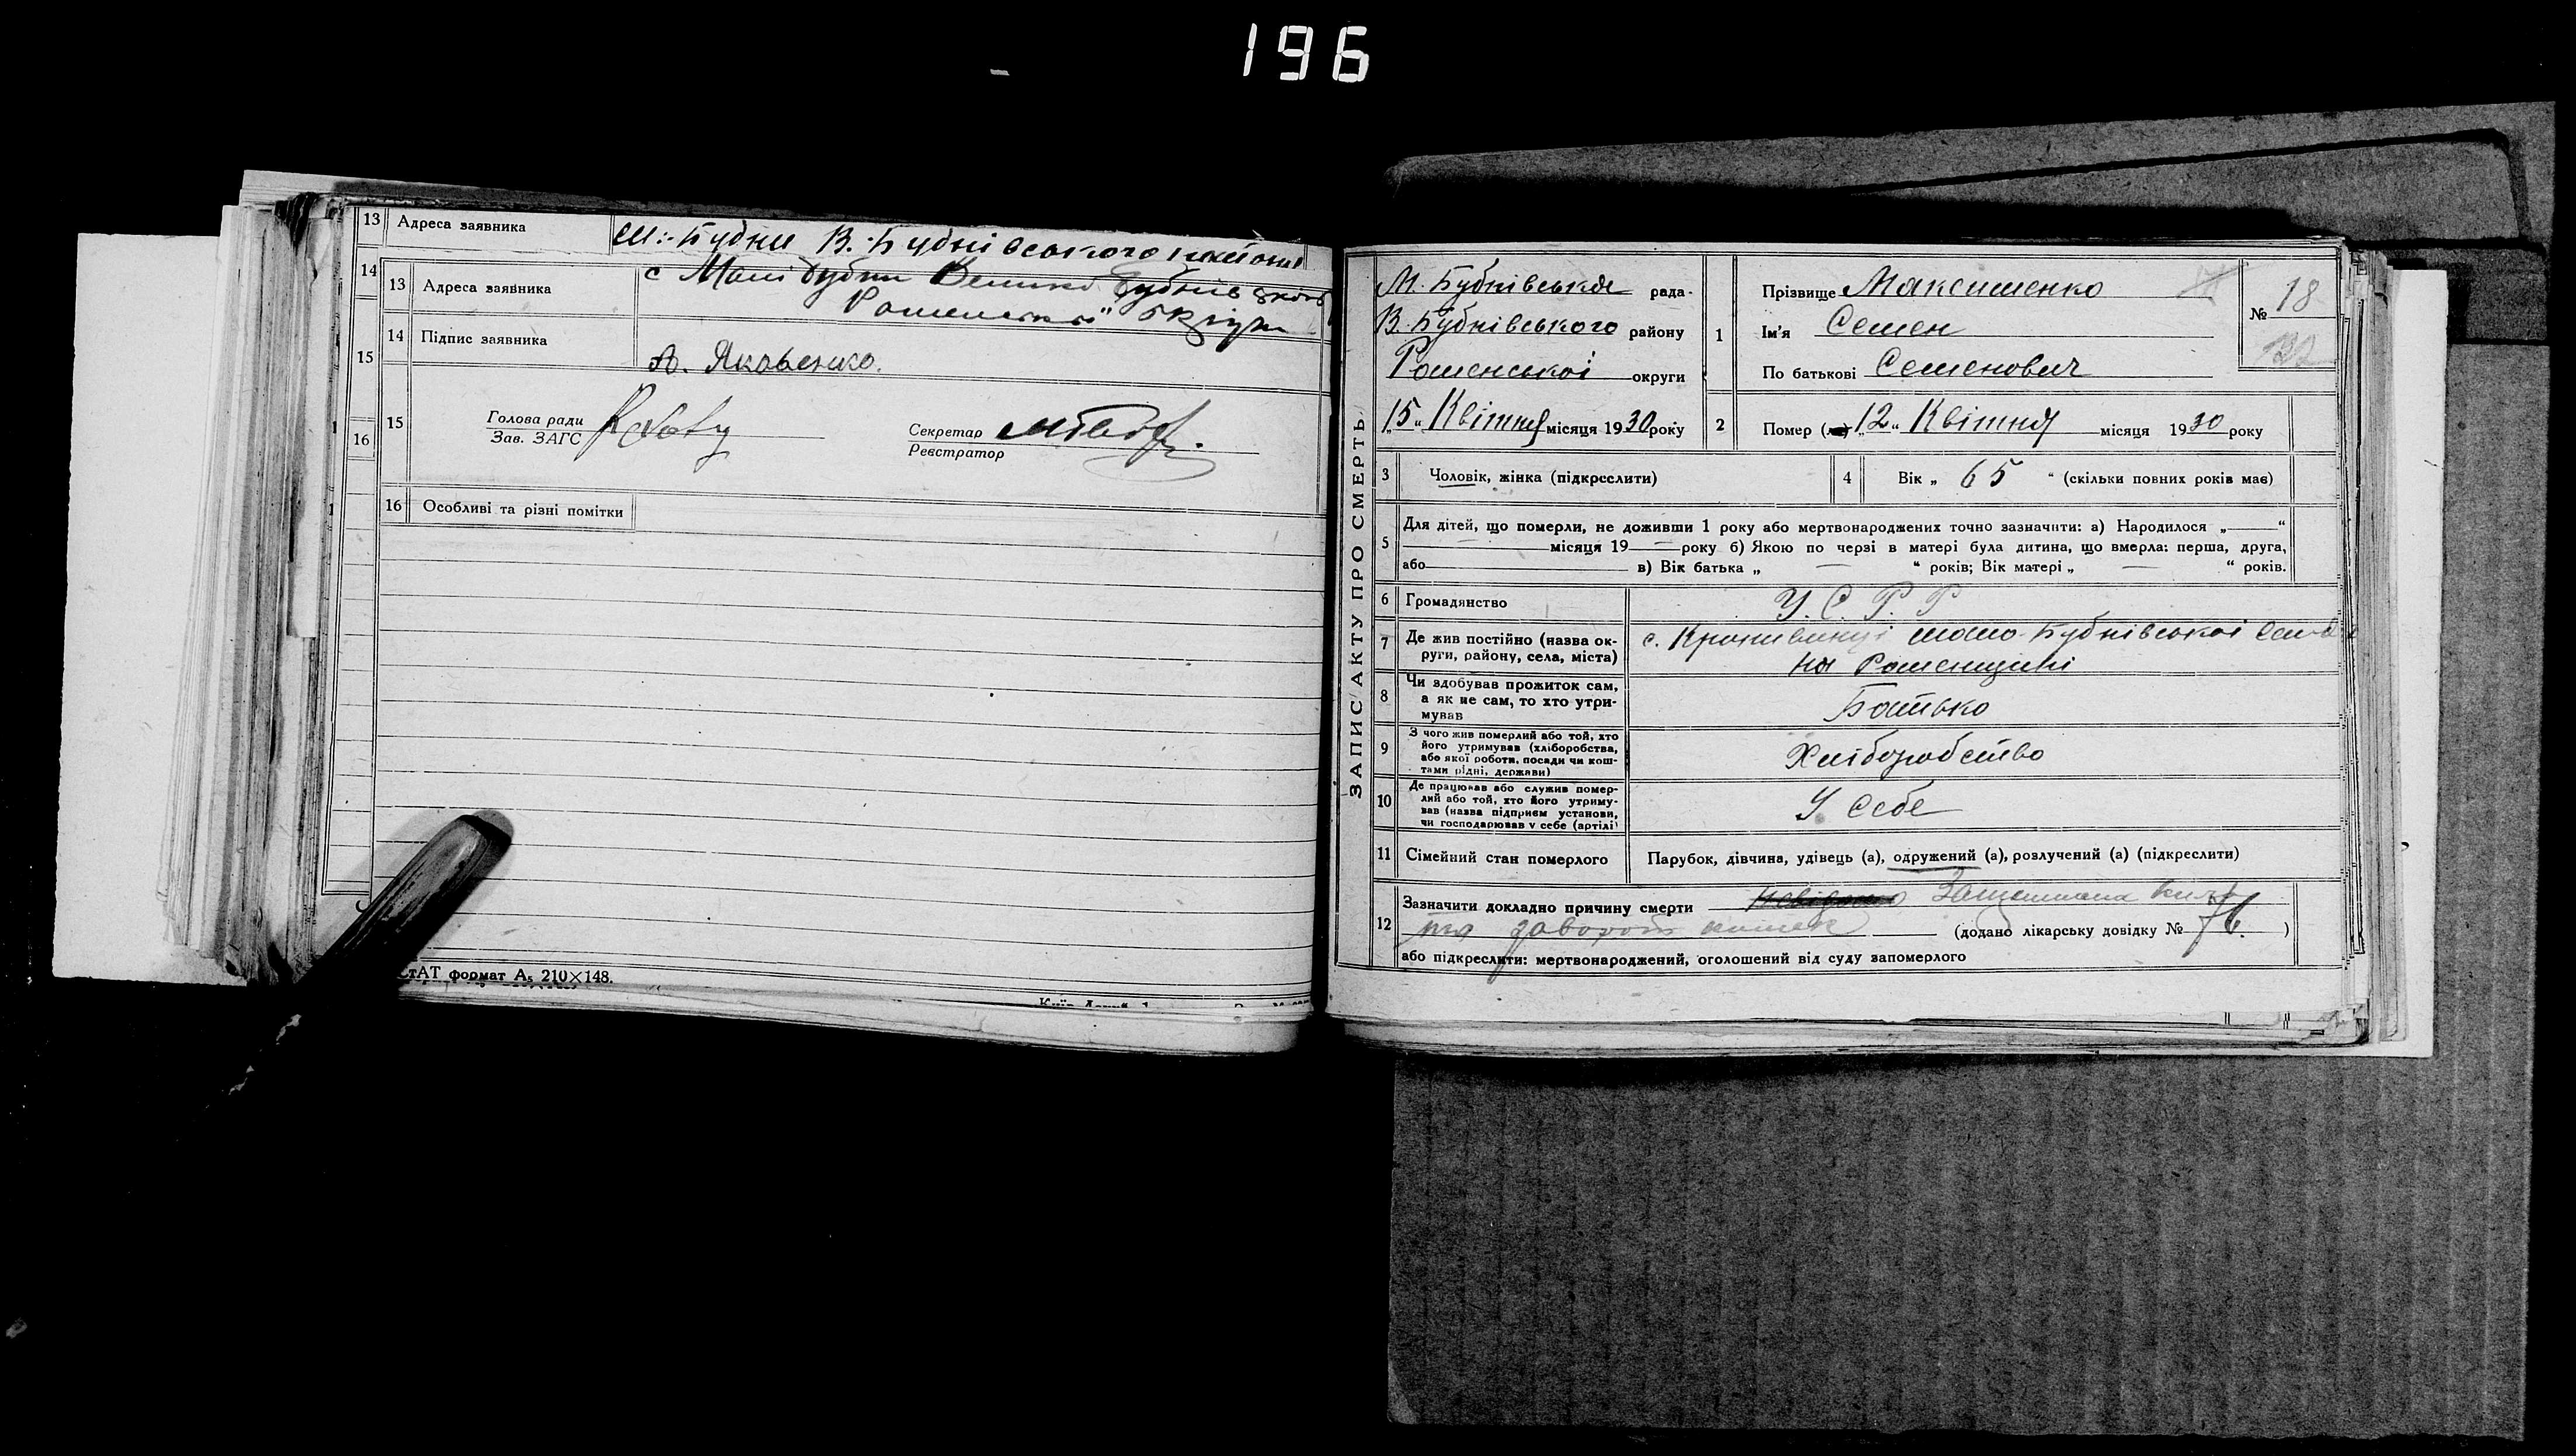 196
13 Адреса заявника М. Бубни В. Бубнівського району
14
13 Адреса заявника с Малі Бубни Велико Бубнівськ
Роменської округи
14 Підпис заявника
15
А. Яковенко.
15 Голова ради
Зав. ЗАГС
Секретар
Реєстратор
16
16 Особливі та різні помітки
СтАТ формат А5 210×148.
ЗАПИС АКТУ ПРО СМЕРТЬ
М. Бубнівська рада
В. Бубнівського району
Роменської округи
„15“ Квітня місяця 1930 року
1 Прізвище Максименко
Ім'я Семен
По батькові Семенович
№ 18
132
2 Помер (ла) „12“ Квітня місяця 1930 року
3 Чоловік, жінка (підкреслити)
4 Вік „ 65 “ (скільки повних років має)
5 Для дітей, що померли, не доживши 1 року або мертвонароджених точно зазначити: а) Народилося „—“
місяця 19— року б) Якою по черзі в матері була дитина, що вмерла: перша, друга,
або — в) Вік батька „ — “ років; Вік матері „ — “ років.
6 Громадянство У. С. Р. Р
7 Де жив постійно (назва округи, району, села, міста) с. Кропивинці мало-Бубнівської сільр
на Роменщині
8 Чи здобував прожиток сам,
а як не сам, то хто утри-
мував
Батько
9 З чого жив померлий або той, хто
його утримував (хліборобства,
або якої роботи, посади чи кош-
тами рідні, держави)
Хліборобство
10 Де працював або служив помер-
лий або той, хто його утриму-
вав (назва підприєм установи,
чи господарював у себе (артілі)
У себе
11 Сімейний стан померлого Парубок, дівчина, удівець (а), одружений (а), розлучений (а) (підкреслити)
12 Зазначити докладно причину смерти невідомо Защемлена
заворот кишек (додано лікарську довідку № 76. )
або підкреслити: мертвонароджений, оголошений від суду запомерлого